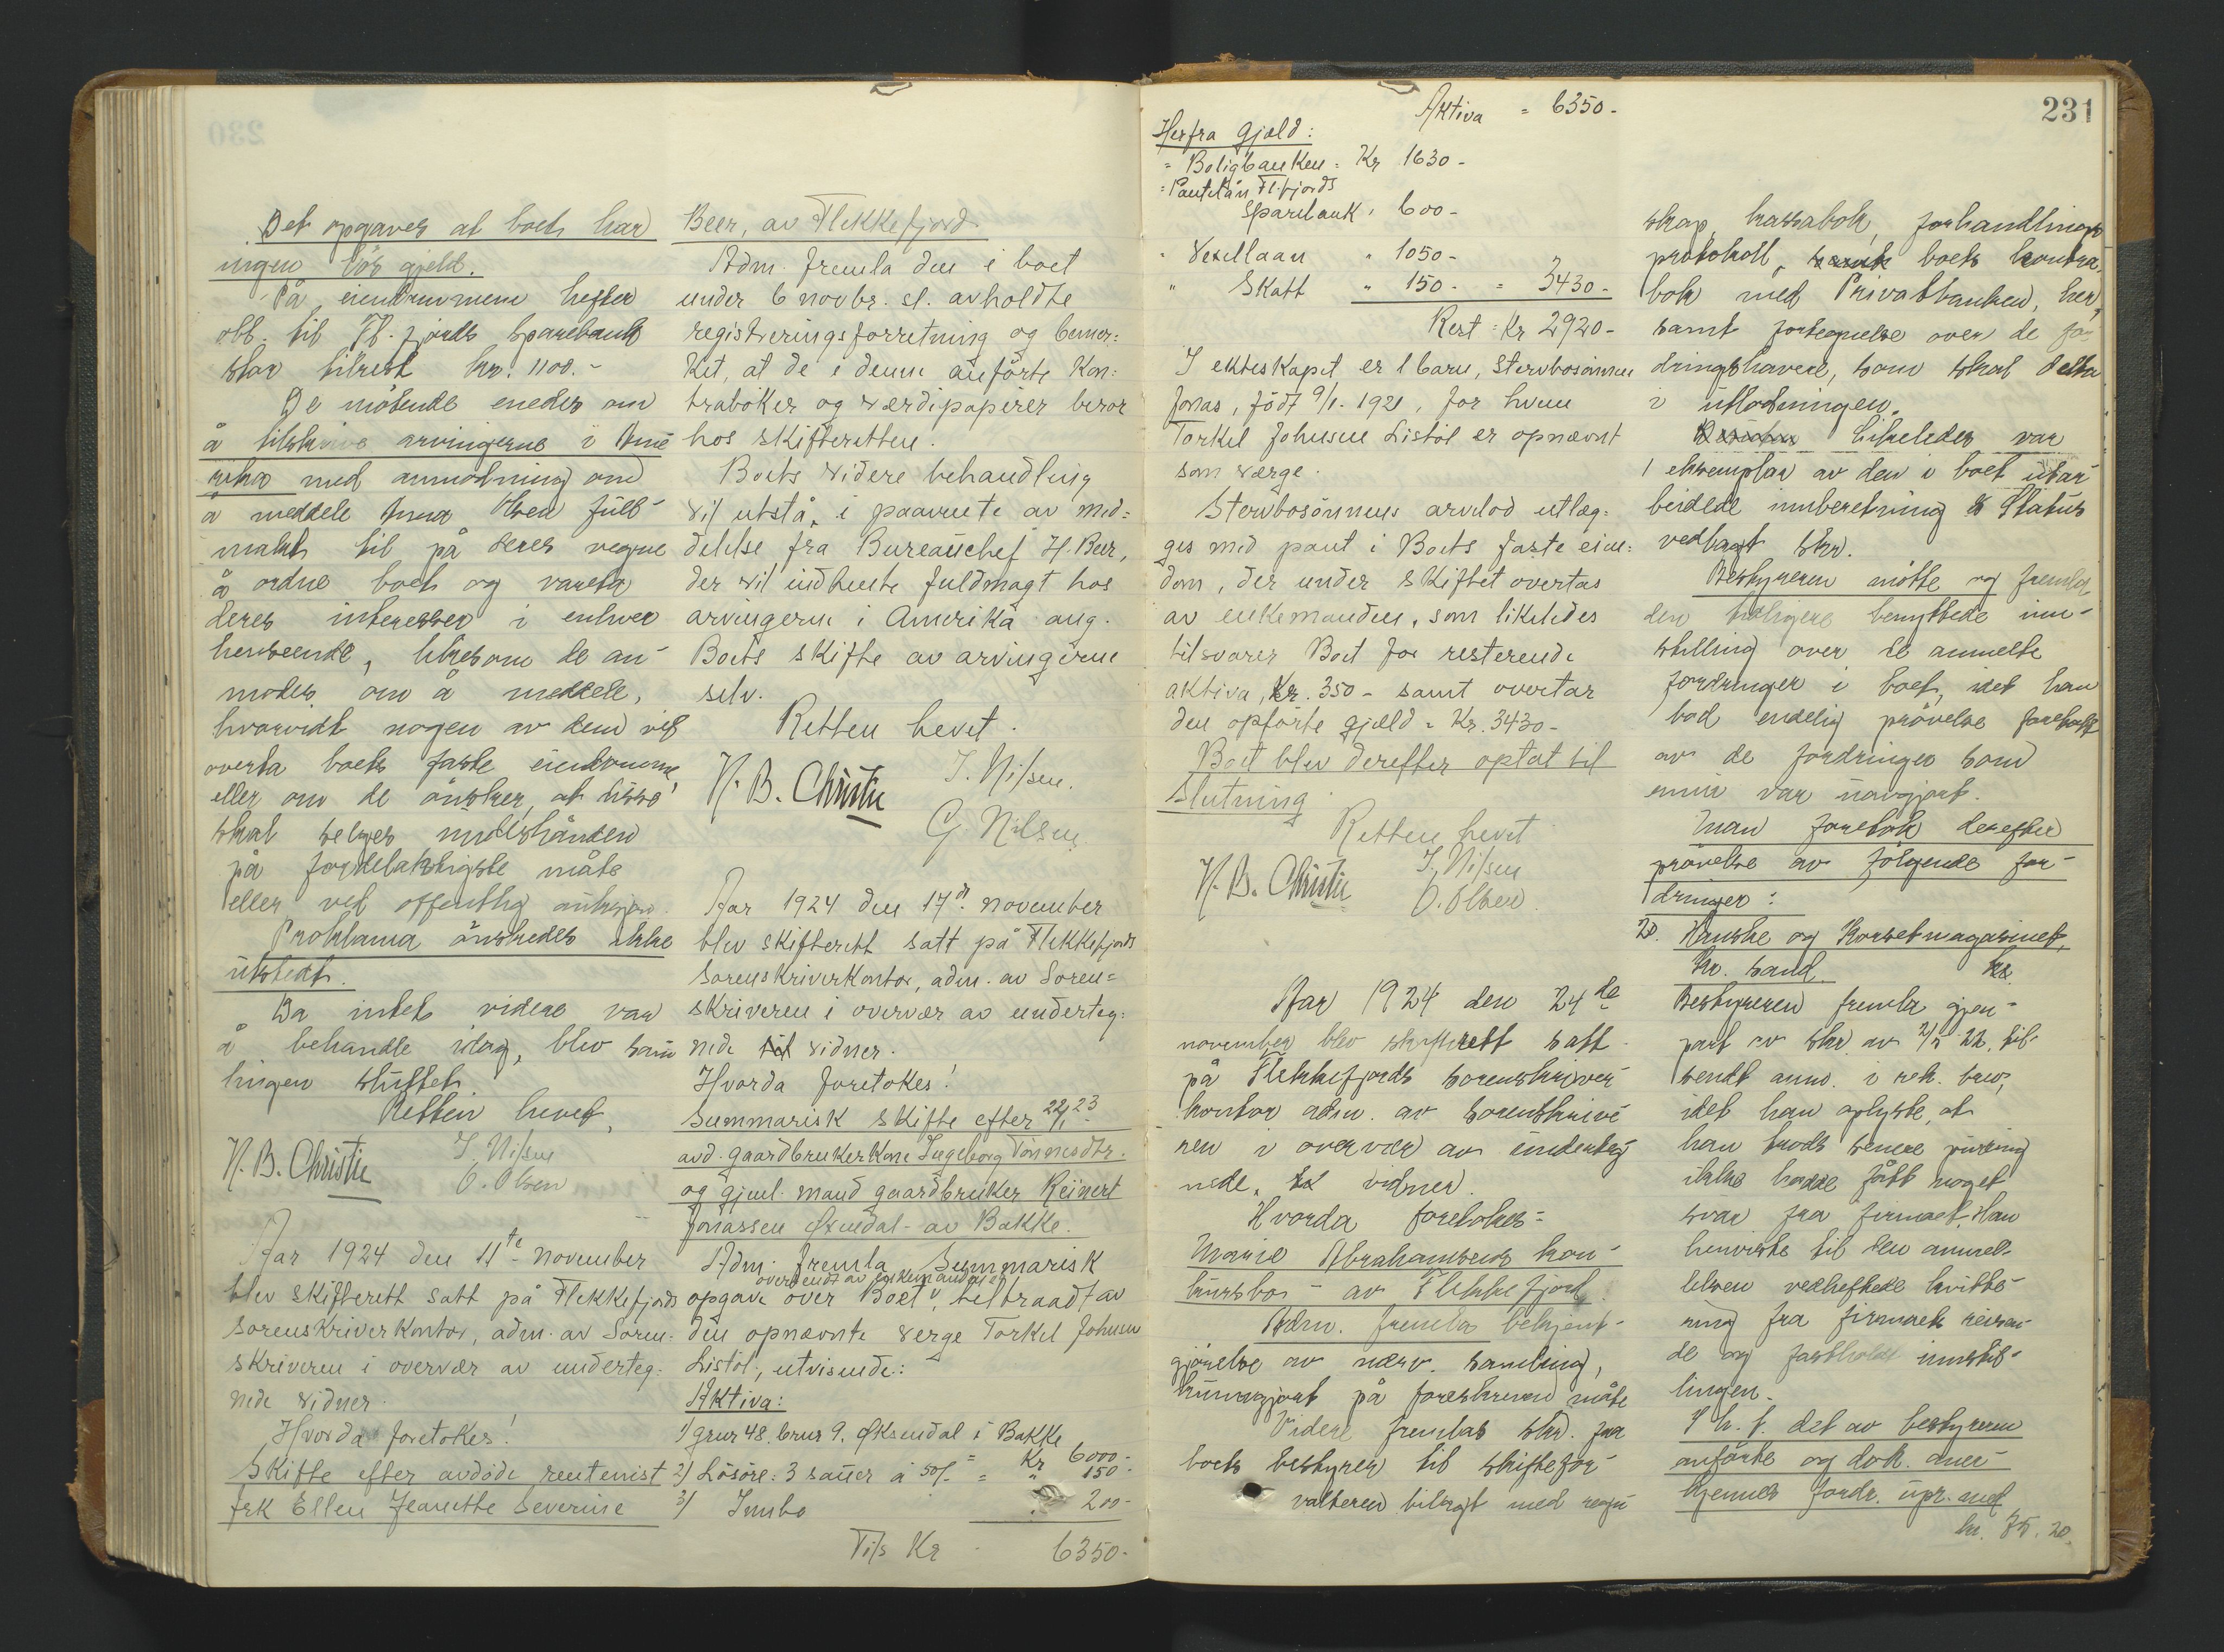 Det opgaves at boet har
ingen lös gjeld.
På eiendommene hefter
obl. til Fl. fjords Sparebank
stor tilrest kr. 1100.-
De mötende enedes om
å tilskrive arvingerne i Ame
rika med anmodning om
å meddele Anna Olsen full-
makt til på deres vegne
å ordne boet og vareta
deres interesser i enhver
henseende, likesom de an-
modes om å meddele,
hvorvidt nogen av dem vil
overta boets faste eiendomme
eller om de önsker, at disse
skal selges underhånden
på fordelaktigste måte
eller ved offentlig auksjon.
Proklama önskedes ikke
utstedt.
Da intet videre var
å behandle idag, blev sam
lingen sluttet
Retten hevet.
N. B. Christie
I. Nilsen
O. Olsen
Aar 1924 den 11te november
blev skifterett satt på Flekkefjords
sorenskriverkontor, adm. av Soren-
skriveren i overvær av underteg-
nede vidner.
Hvorda foretokes!
Skifte efter avdöde rentenist
frk Ellen Jeanette Severine
Beer, av Flekkefjord.
Adm. fremla den i boet
under 6 novbr. sl. avholdte
registreringsforretning og bemer-
ket, at de i denne anförte Kon-
traböker og verdipapirer beror
hos skifteretten.
Boets videre behandling
vil utstå, i paavente av med-
delelse fra Bureauchef H. Beer,
der vil indhente fuldmagt hos
arvingerne i Amerika ang.
Boets skifte av arvingerne
selv.
Retten hevet.
N. B. Christie
I. Nilsen.
G. Nilsen.
Aar 1924 den 17de november
blev skifterett satt på Flekkefjords
Sorenskriverkontor, adm. av Soren-
skriveren i overvær av underteg-
nede vidner.
Hvorda foretokes!
Summarisk skifte efter 22/1 23
avd. gaardbrukerkone Ingeborg Tönnesdtr.
og gjenl. mand gaardbruker Reinert
Jonassen Øxendal - av Bakke.
Adm. fremla Summarisk
overendt av enkemanden
opgave over Boet, tiltraadt av
den opnævnte verge Torkel Johnsen
Listöl, utvisende:
Aktiva:
1) grnr 48. brnr 9. Øksendal i Bakke
= Kr 6000-
2) Lösöre: 3 sauer a 50/- = " 150-
3) Innbo " 200-
Tils Kr 6350-
231
Aktiva = 6350-
Herfra Gjæld:
" Boligbanken = Kr 1630-
" Pantelån Fl. fjords
Sparebank " 600-
" Vexellaan " 1050-
" Skatt " 150- = 3430-
Rest = Kr 2920-
I ekteskapet er 1 barn, stervbosönnen
Jonas, födt 9/1. 1921, for hvem
Torkel Johnsen Listöl er opnævnt
som værge.
Stervbosönnens arvelod utlæg-
ges med pant i Boets faste eien-
dom, der under skiftet overtas
av enkemanden, som likeledes
tilsvarer Boet for resterende
aktiva, Kr. 350- samt overtar
den opförte gjæld = Kr. 3430-
Boet blev derefter optat til
Slutning.
Retten hevet
N. B. Christie
I. Nilsen
O. Olsen.
Aar 1924 den 24de
november blev skifterett satt
på Flekkefjords sorenskriver-
kontor adm. av sorenskrive
ren i overvær av underteg-
nede vidner.
Hvorda foretokes:
Marie Abrahamsens kon-
kursbo - av Flekkefjord.
Adm. fremla bekjent-
gjörelse av nærv. samling,
kunngjort på foreskreven måte
Videre fremlas skr. fra
boets bestyrer til skiftefor-
valteren bilagt med regn
skap, kassabok, forhandlings
protokoll, boets kontra
bok med Privatbanken, her,
samt fortegnelse over de for
dringshavere, som skal delta
i utlodningen.
Likeledes var
1 eksemplar av den i boet utar
beidede innberetning & Status
vedlagt skr.
Bestyreren mötte og fremla
den tidligere benyttede inn-
stilling over de anmeldte
fordringer i boet, idet han
bad endelig prövelse foretatt
av de fordringer som
ennu var uavgjort.
Man foretok derefter
prövelse av fölgende for-
dringer:
20. Hanske og Korsetmagasinet,
Kr. sand. kr.
Bestyreren fremla gjen-
part av skr. av 2/5 22, til-
sendt anm. i rek. brev,
idet han oplyste, at
han trods senere purring
ikke hadde fått noget
svar fra firmaet. Han
henviste til den anmel-
delsen vedheftede kvitte-
ring fra firmaets reisen-
de og fastholdt innstil-
lingen.
I h. t. det av bestyreren
anförte og dok. aner-
kjennes fordr. upr. med
kr. 35.20.